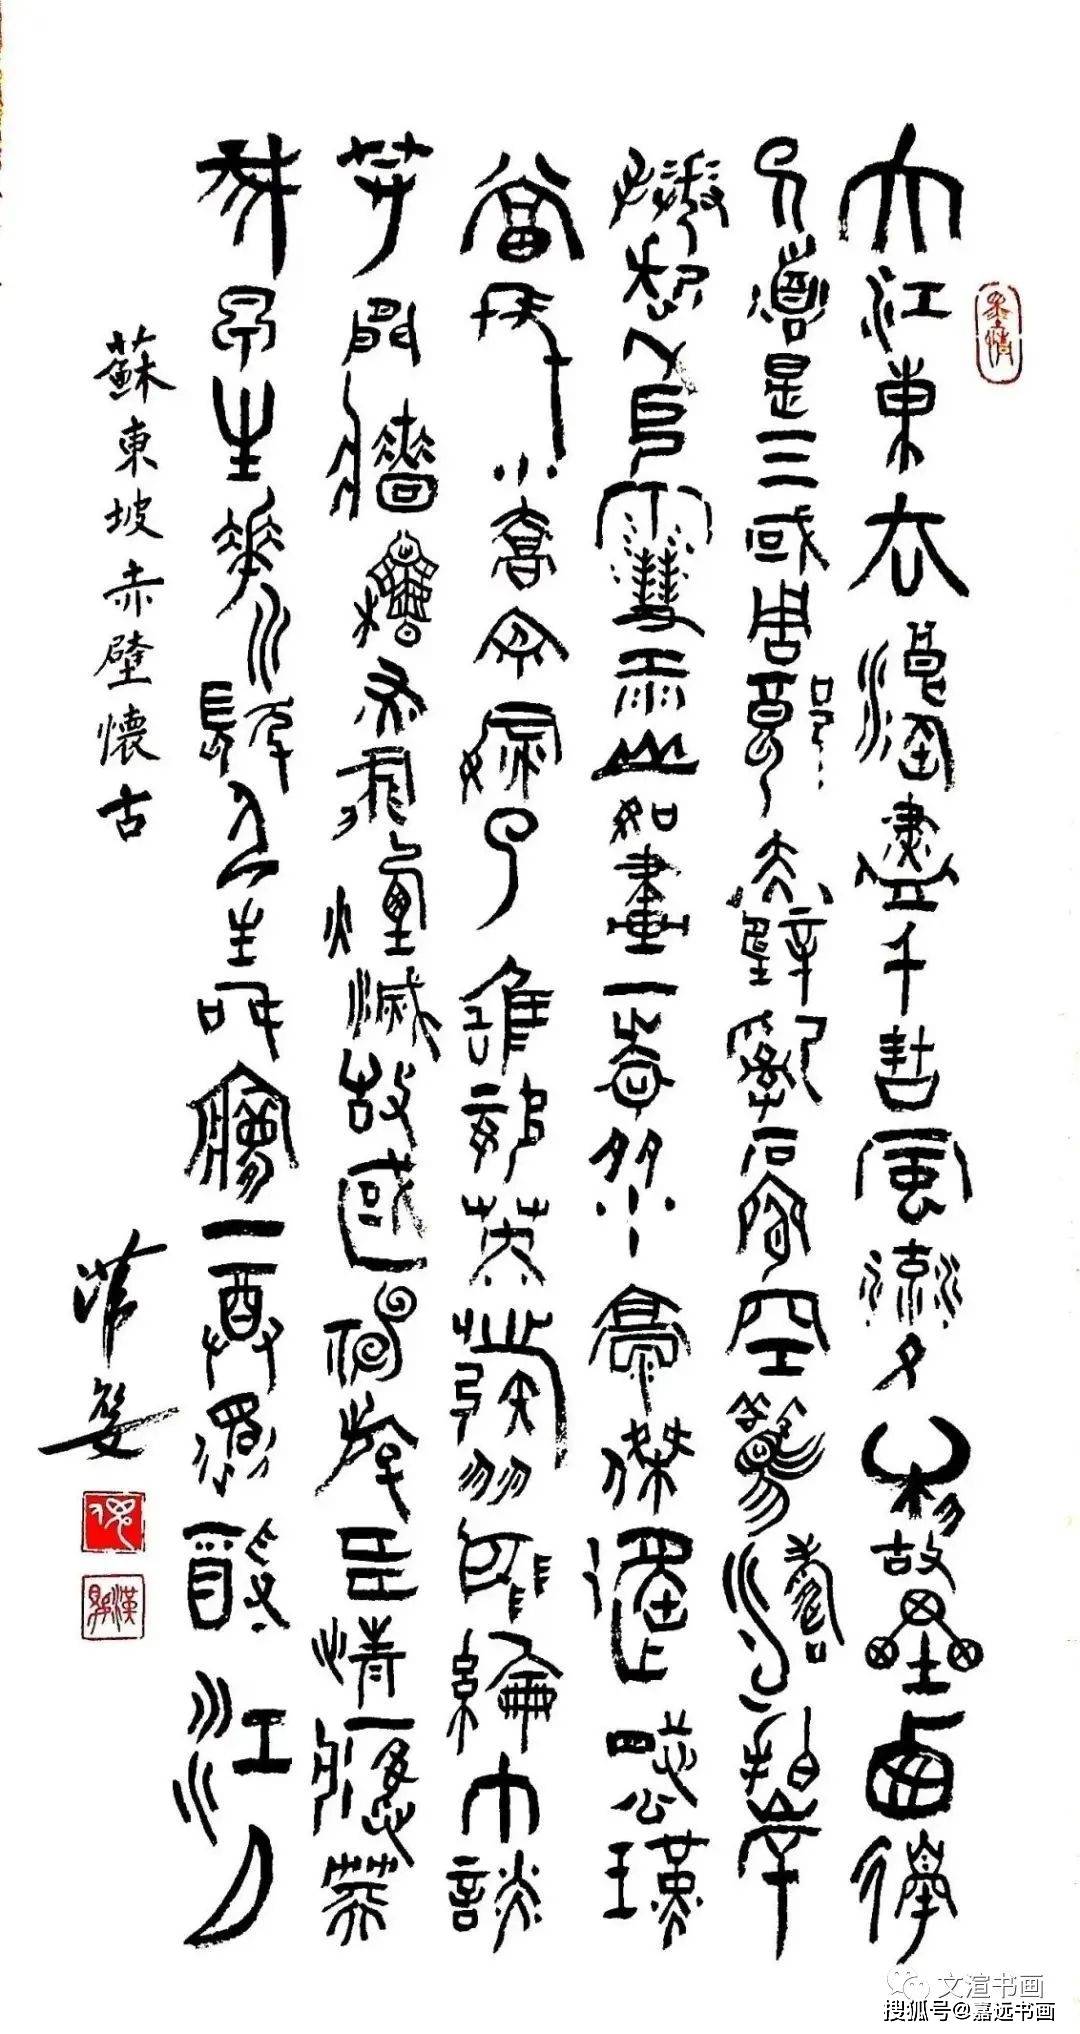 大江東去浪淘盡千古風流人物故壘西邊
人道是三國周郎赤壁亂石穿空驚濤拍岸
捲起千堆雪江山如畫一時多少豪傑遙想公瑾
當年小喬初嫁了雄姿英發羽扇綸巾談
笑間檣櫓灰飛煙滅故國神遊多情應笑
我早生華髮人生如夢一尊還酹江月
蘇東坡赤壁懷古
文渲书画
搜狐号@嘉远书画